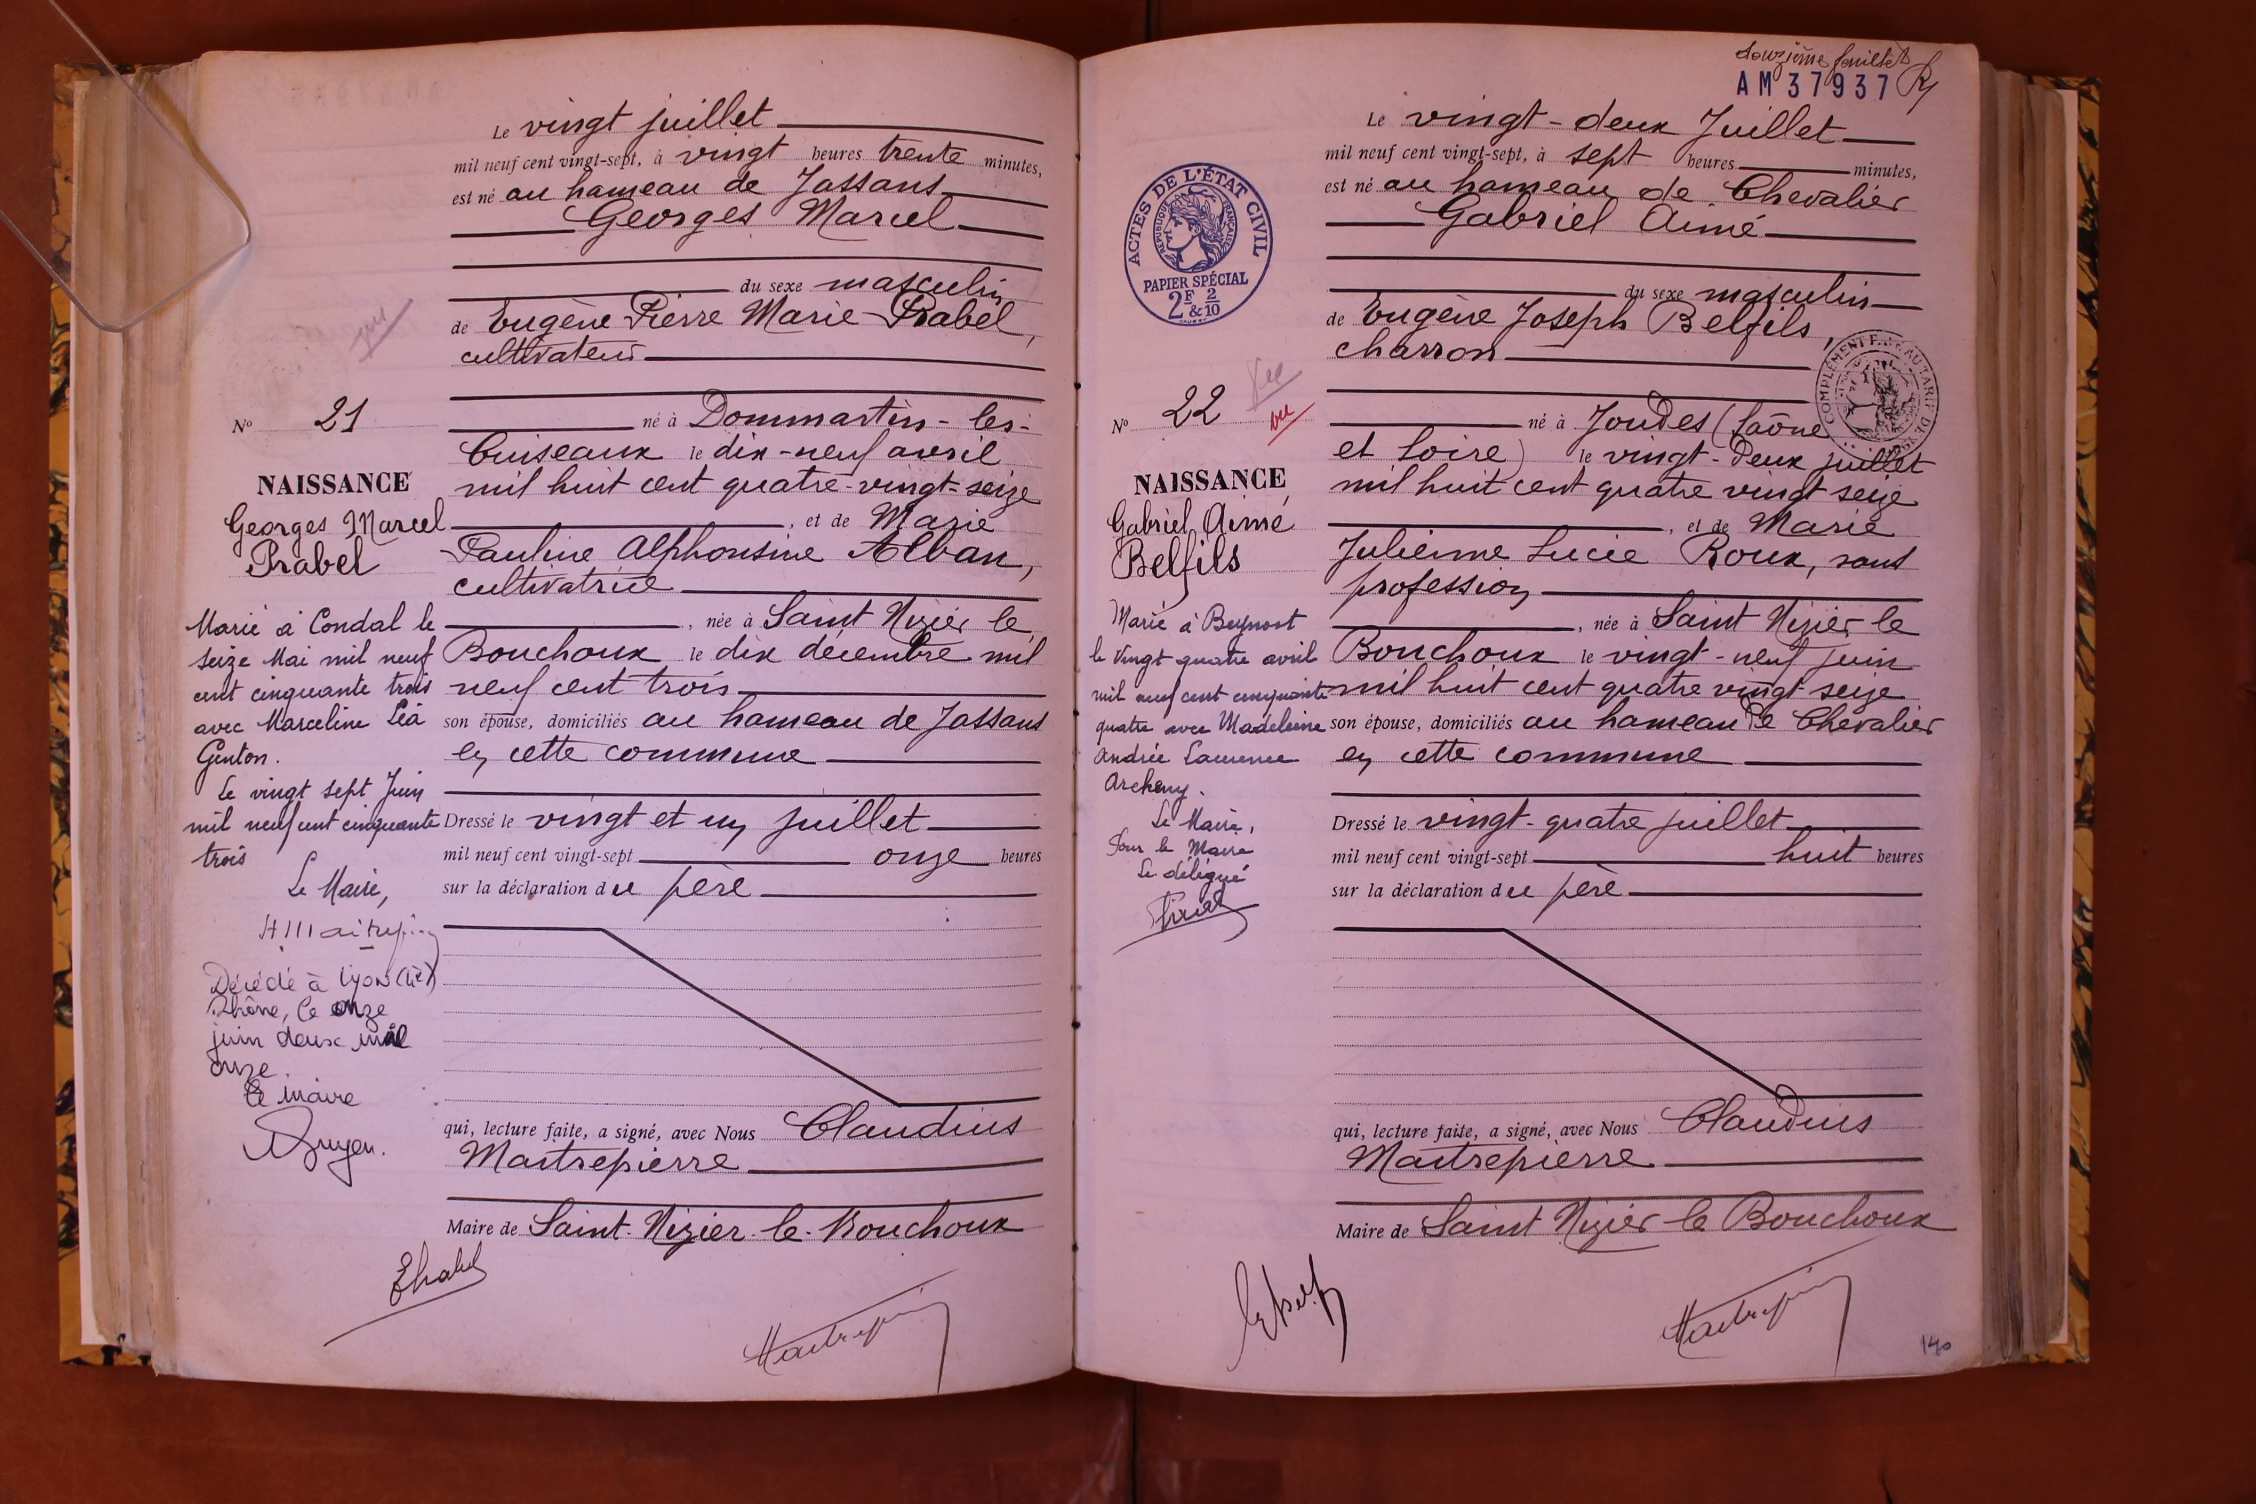 Le vingt juillet
mil neuf cent vingt-sept, à vingt heures trente minutes,
est né au hameau de Jassans
Georges Marcel
du sexe masculin
de Eugène Pierre Marie Prabel,
cultivateur
né à Dommartin-les-
Cuiseaux le dix-neuf avril
mil huit cent quatre-vingt-seize
, et de Marie
Pauline Alphonsine Alban,
cultivatrice
, née à Saint Nizier le
Bouchoux le dix décembre mil
neuf cent trois
son épouse, domiciliés au hameau de Jassans
en cette commune
Dressé le vingt et un juillet
mil neuf cent vingt-sept onze heures
sur la déclaration du père
qui, lecture faite, a signé, avec Nous Claudius
Maitrepierre
Maire de Saint-Nizier-le-Bouchoux
Nº 21
NAISSANCE
Georges Marcel
Prabel
Marié à Condal le
seize Mai mil neuf
cent cinquante trois
avec Marceline Léa
Genton.
Le vingt sept Juin
mil neuf cent cinquante
trois
Le Maire,
Décédé à Lyon
Rhône, le onze
juin deux mil
onze
Le maire
douzième feuillet
AM 37937
Le vingt-deux Juillet
mil neuf cent vingt-sept, à sept heures minutes,
est né au hameau de Chevalier
Gabriel Aimé
du sexe masculin
de Eugène Joseph Belfils,
charron
né à Joudes (Saône
et Loire) le vingt-deux juillet
mil huit cent quatre vingt seize
, et de Marie
Julienne Lucie Roux, sans
profession
, née à Saint Nizier le
Bouchoux le vingt-neuf juin
mil huit cent quatre vingt seize
son épouse, domiciliés au hameau de Chevalier
en cette commune
Dressé le vingt-quatre juillet
mil neuf cent vingt-sept huit heures
sur la déclaration du père
qui, lecture faite, a signé, avec Nous Claudius
Maitrepierre
Maire de Saint Nizier le Bouchoux
ACTES DE L'ÉTAT CIVIL
RÉPUBLIQUE FRANÇAISE
PAPIER SPÉCIAL
2F & 2/10
Nº 22
vu
NAISSANCE
Gabriel Aimé
Belfils
Marié à Beynost
le vingt quatre avril
mil neuf cent cinquante
quatre avec Madeleine
Andrée Laurence
Archeny.
Le Maire,
Pour le Maire
Le délégué
140